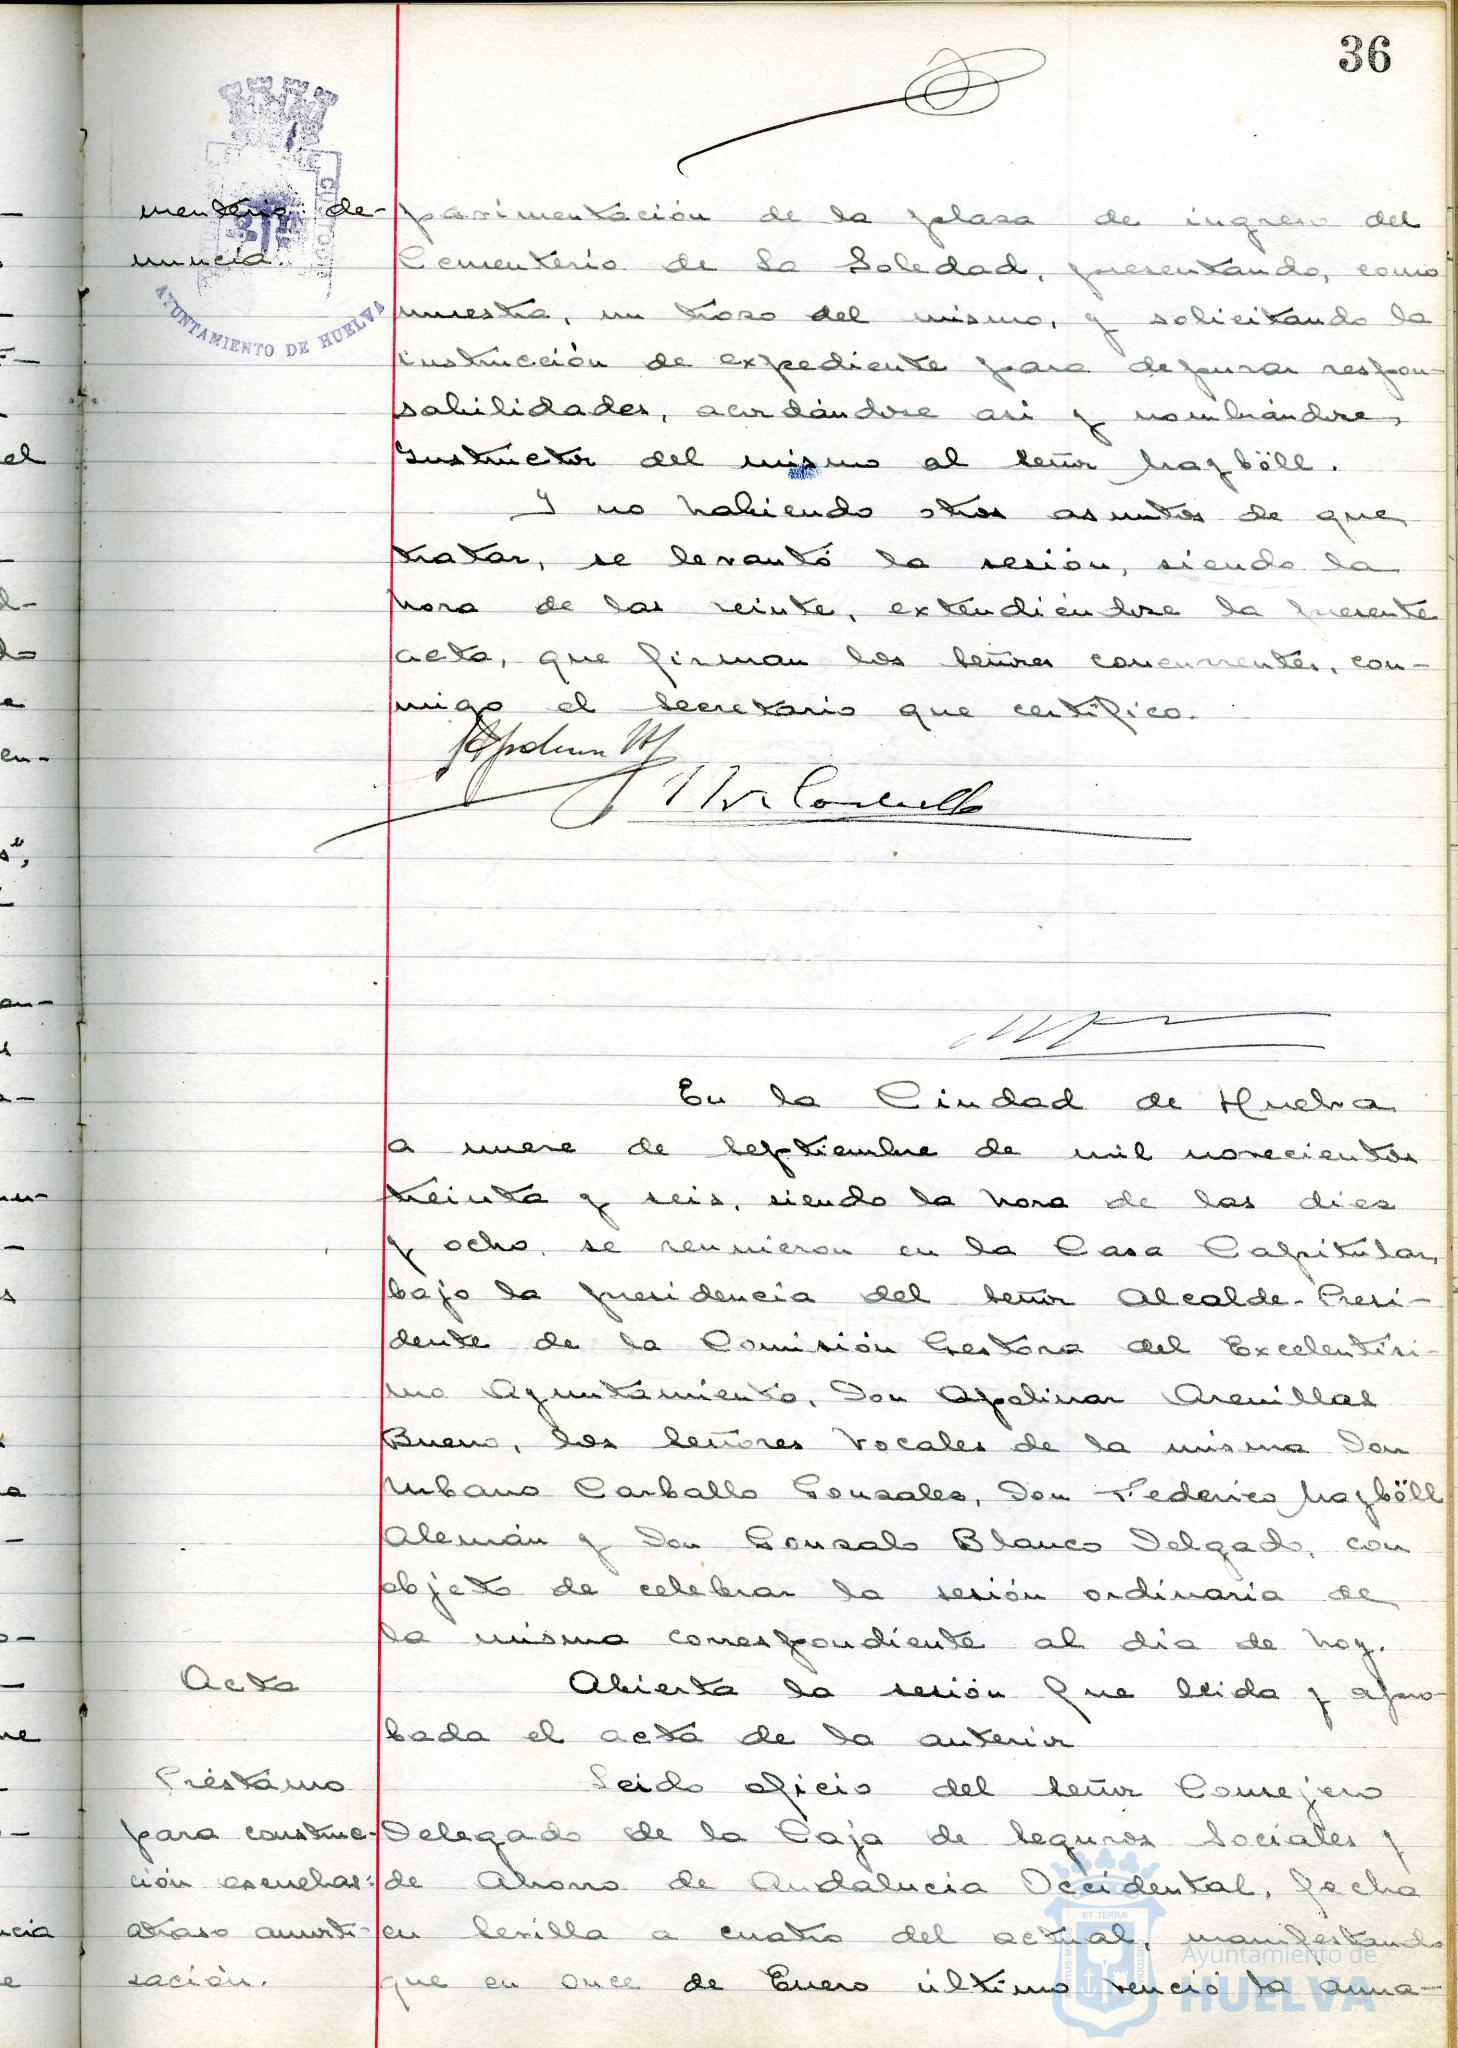 36
menterio: de-
nuncia.
AYUNTAMIENTO DE HUELVA
pavimentación de la plaza de ingreso del
Cementerio de La Soledad, presentando, como
muestra, un trozo del mismo, y solicitando la
instrucción de expediente para depurar respon-
sabilidades, acordándose así y nombrándose
Instructor del mismo al señor Mazböll.
Y no habiendo otros asuntos de que
tratar, se levantó la sesión, siendo la
hora de las veinte, extendiéndose la presente
acta, que firman los señores concurrentes, con-
migo el Secretario que certifico.
En la Ciudad de Huelva
a nueve de Septiembre de mil novecientos
treinta y seis, siendo la hora de las diez
y ocho, se reunieron en la Casa Capitular,
bajo la presidencia del señor Alcalde-Presi-
dente de la Comisión Gestora del Excelentísi-
mo Ayuntamiento, Don Apolinar Arenillas
Bueno, los señores Vocales de la misma Don
Urbano Carballo Gonzales, Don Federico Mazböll
Alemán y Don Gonzalo Blanco Delgado, con
objeto de celebrar la sesión ordinaria de
la misma correspondiente al día de hoy.
Acta
Abierta la sesión fue leida y apro-
bada el acta de la anterior
Préstamo
para construc-
ción escuelas:
atraso amorti-
zación.
Leido oficio del señor Consejero
Delegado de la Caja de Seguros Sociales y
de Ahorro de Andalucia Occidental, fecha
en Sevilla a cuatro del actual, manifestando
que en once de Enero último venció la anua-
Ayuntamiento de
HUELVA